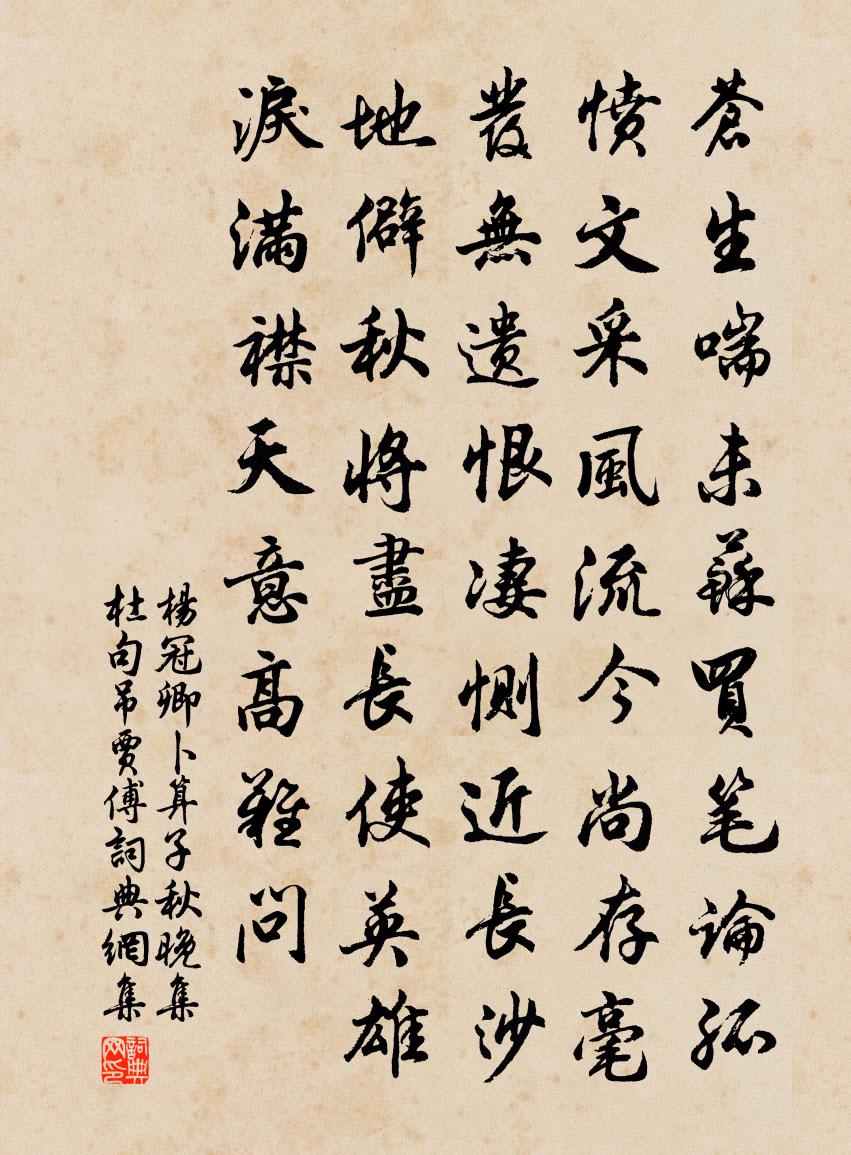 蒼生喘未蘇買笔論孤
憤文采風流今尚存毫
發無遺恨凄惻近長沙
地僻秋將盡長使英雄
淚滿襟天意高難問
楊冠卿卜算子秋晚集
杜句吊賈傅詞典網集
詞典网印